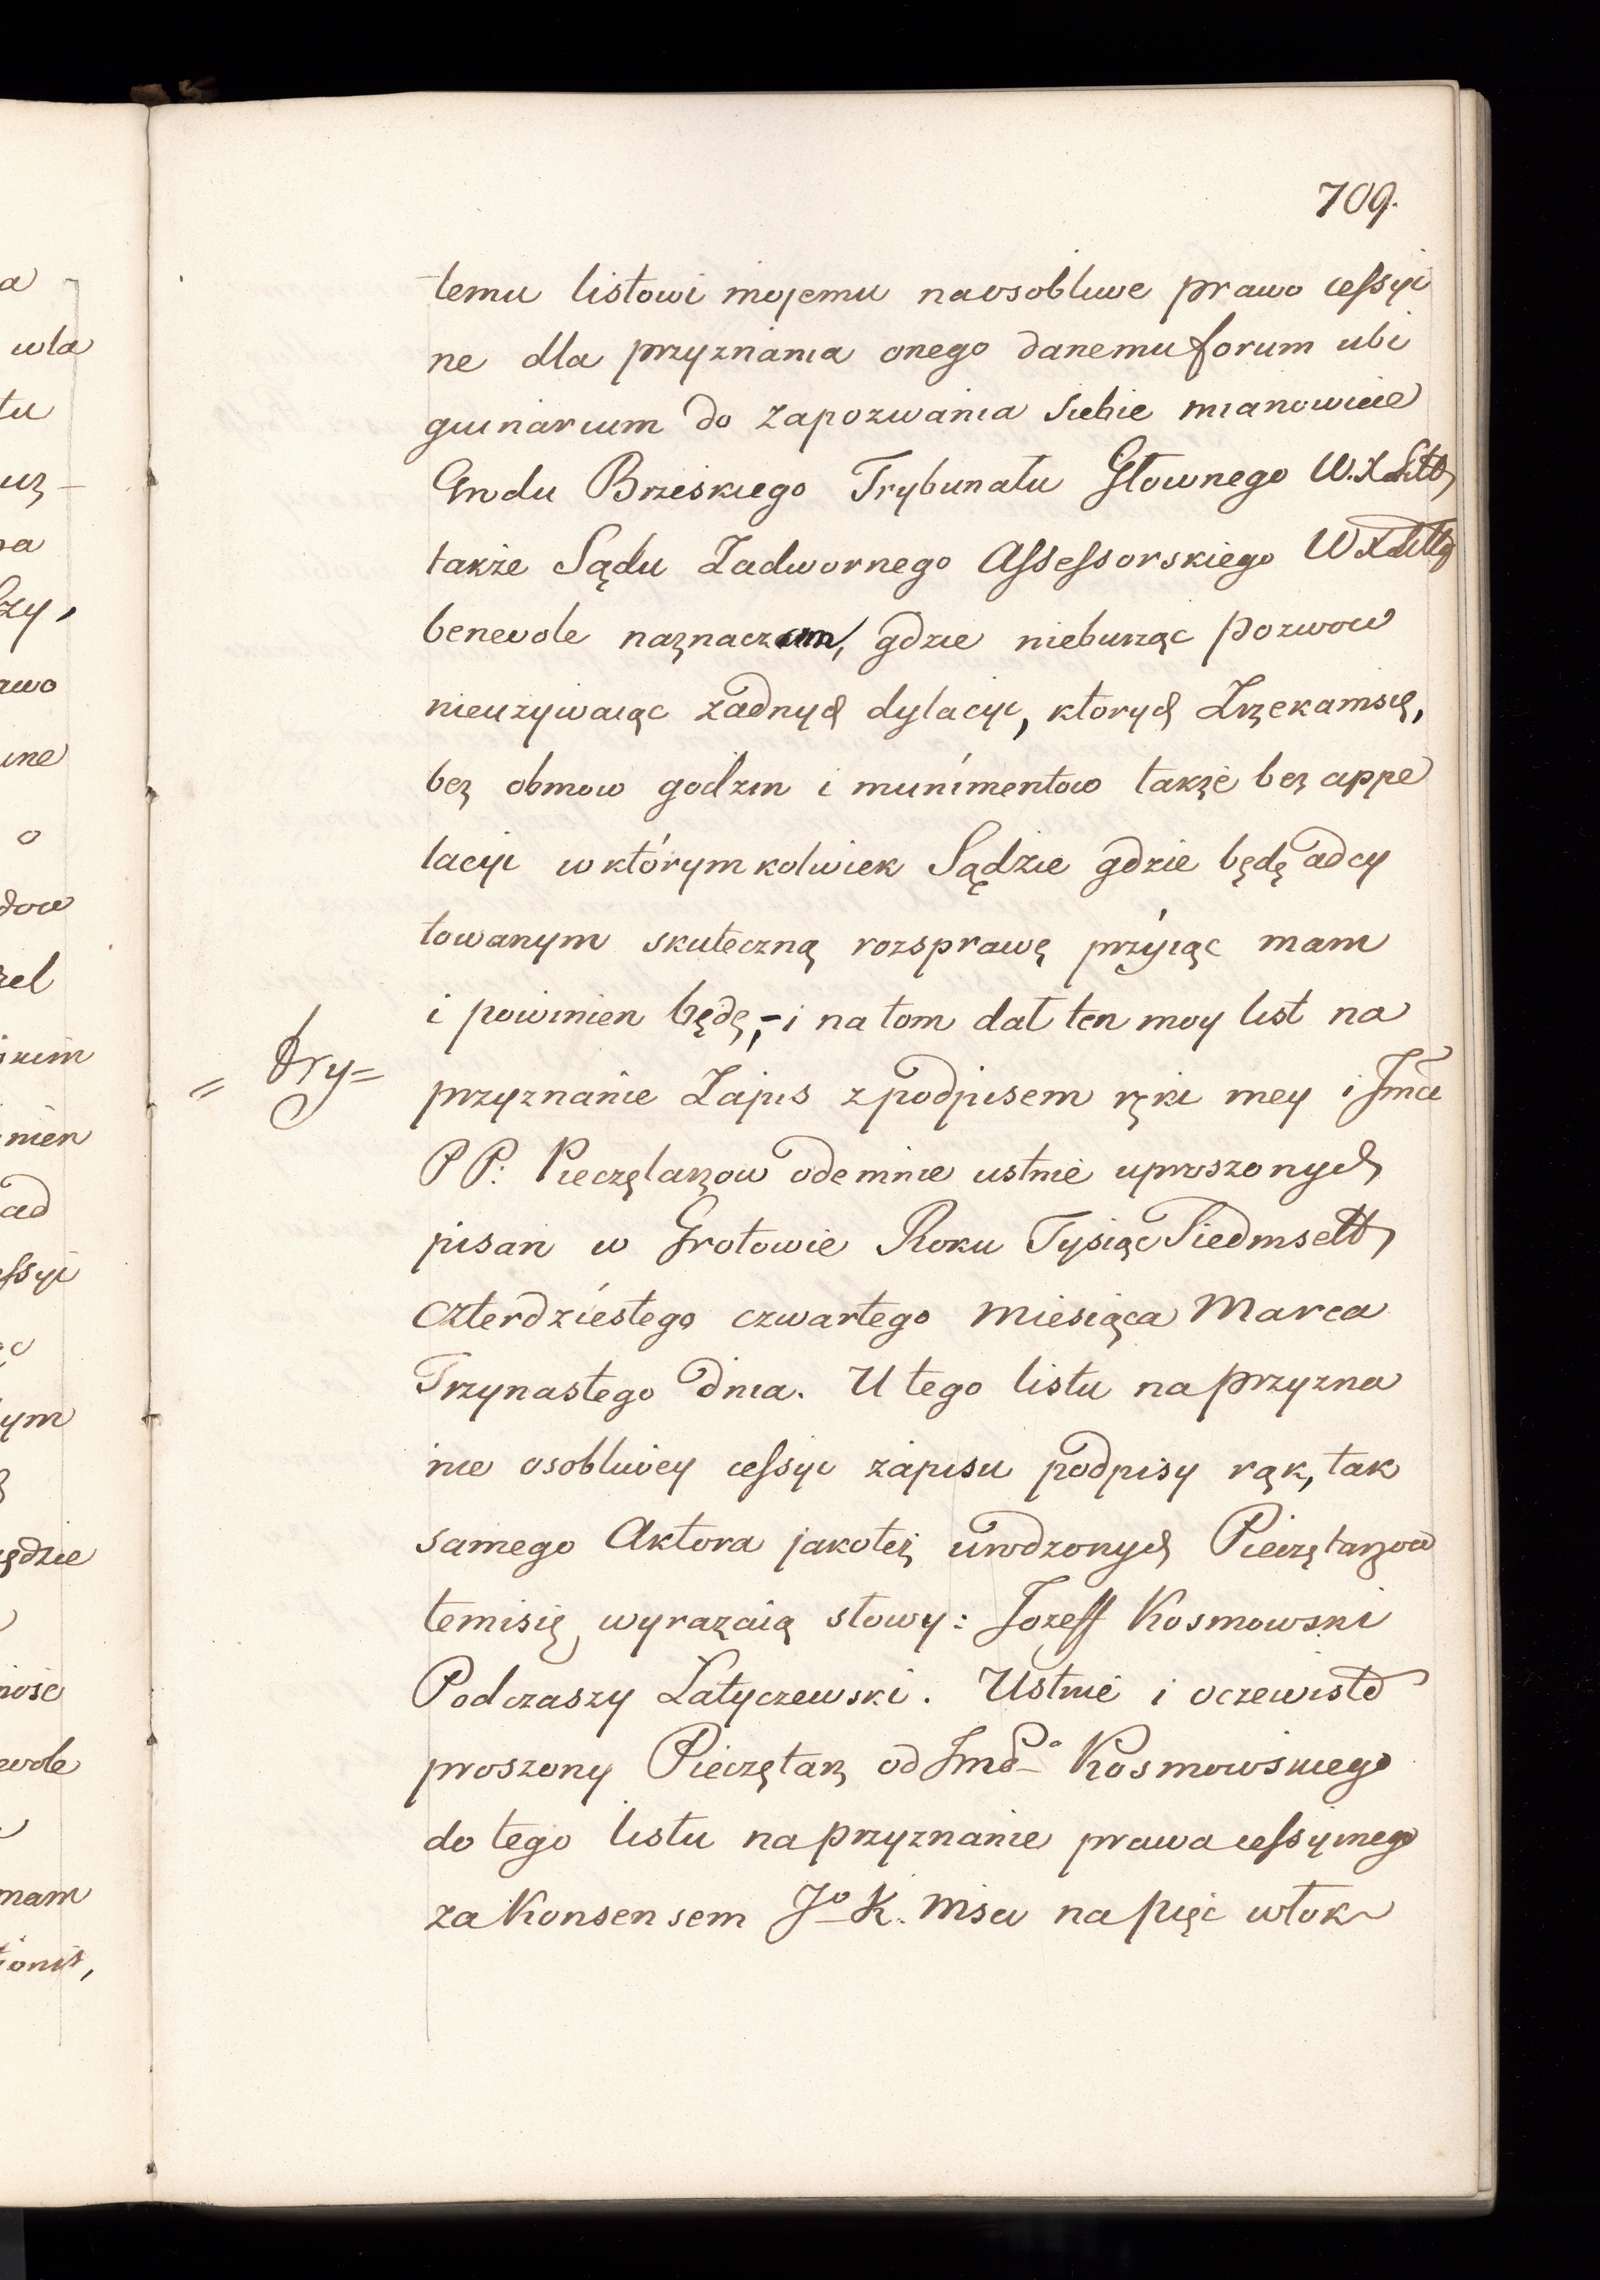 709.
temu listowi mojemu na osobliwe prawo cessyi
ne dla przyznania onego danemu forum ubi
guinarium do zapozwania siebie mianowicie
Grodu Brzeskiego Trybunału Głownego W.X.Litt
także Sądu Zadwornego Assessorskiego WXLitt
benevole naznaczam, gdzie nieburząc pozwow
nieuzywaiąc zadnych dylacyi, ktorych Zrzekamsię,
bez obmow godzin i munimentow także bez appe
lacyi w którymkolwiek Sądzie gdzie będę adcy
towanym skuteczną rozsprawę przyiąc mam
i powinien będę,- i na tom dał ten moy list na
= Pry=
przyznanie Zapis z podpisem ręki mey i Jmci
PP: Pieczętarzow odemnie ustnie uproszonych
pisan w Grotowie Roku Tysiąc Siedmsett
czterdziestego czwartego miesiąca Marca
Trzynastego dnia. U tego listu na przyzna
nie osobliwey cessyi zapisu podpisy rąk, tak
samego Aktora jakoteż urodzonych Pieczętarzow
temisię wyrazaią słowy: Jozeff Kosmowski
Podczaszy Latyczewski. Ustnie i oczewisto
proszony Pieczętarz od Jmci Kosmowskiego
do tego listu na przyznanie prawa cessyinego
za Konsensem Jo K. Msci na pięc włok
a
wla
tu
uz
na
czy,
awo
ine
o
dow
zel
skim
nien
ad
essyi
ąc
ym
ędzie
nosc
evole
mam
tionis,